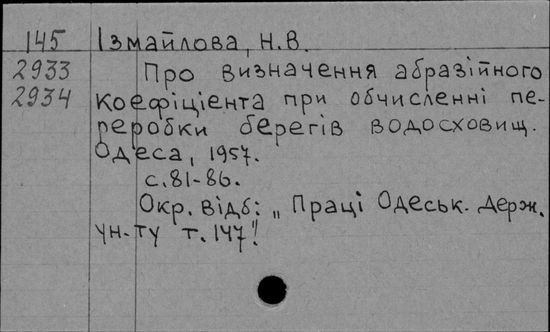 145 Ізмайлова, Н.В.
2933 Про визначення абразійного
2934 коефіціента при обчисленні пе-
реробки берегів водосховищ.
Одеса, 1957.
с.81-86.
Окр. відб: „Праці Одеськ. держ.
ун-ту т.147".